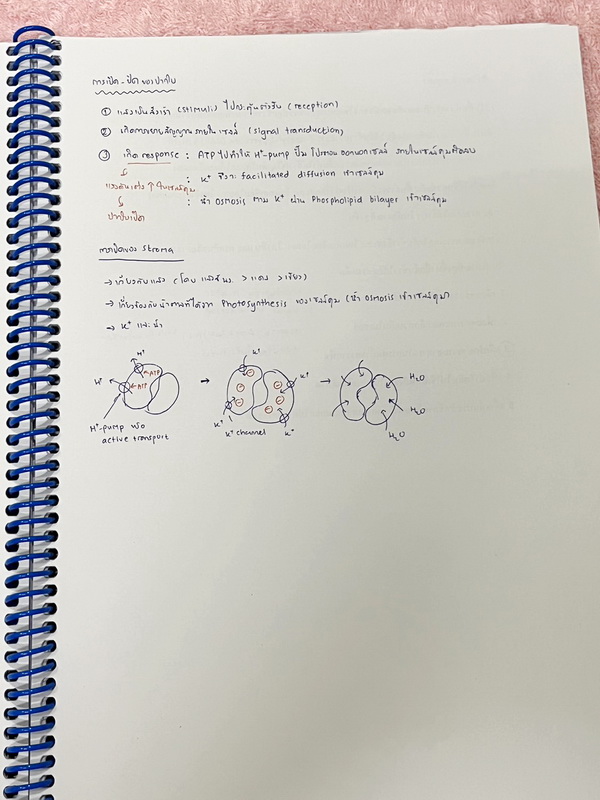 การเปิด - ปิด ของปากใบ
① แสงเป็นสิ่งเร้า (stimuli) ไปกระตุ้นตัวรับ (reception)
② เกิดการขยายสัญญาณภายในเซลล์ (signal transduction)
③ เกิด response : ATP ไปทำให้ H⁺-pump ปั๊มโปรตอนออกนอกเซลล์ ภายในเซลล์คุมติดลบ
แรงดันเต่ง ↑ ในเซลล์คุม
: K⁺ จึงจะ facilitated diffusion เข้าเซลล์คุม
: น้ำ osmosis ตาม K⁺ ผ่าน Phospholipid bilayer เข้าเซลล์คุม
ปากใบเปิด
การเปิดของ stroma
→ เกี่ยวกับแสง (โดย แสงสีนง. > แดง > เขียว)
→ เกี่ยวข้องกับน้ำตาลที่ได้จาก Photosynthesis ของเซลล์คุม (น้ำ osmosis เข้าเซลล์คุม)
→ K⁺ และน้ำ
H⁺
H⁺
ATP
ATP
H⁺-pump
active transport
→
K⁺
K⁺
K⁺
K⁺ channel
K⁺
→
H₂O
H₂O
H₂O